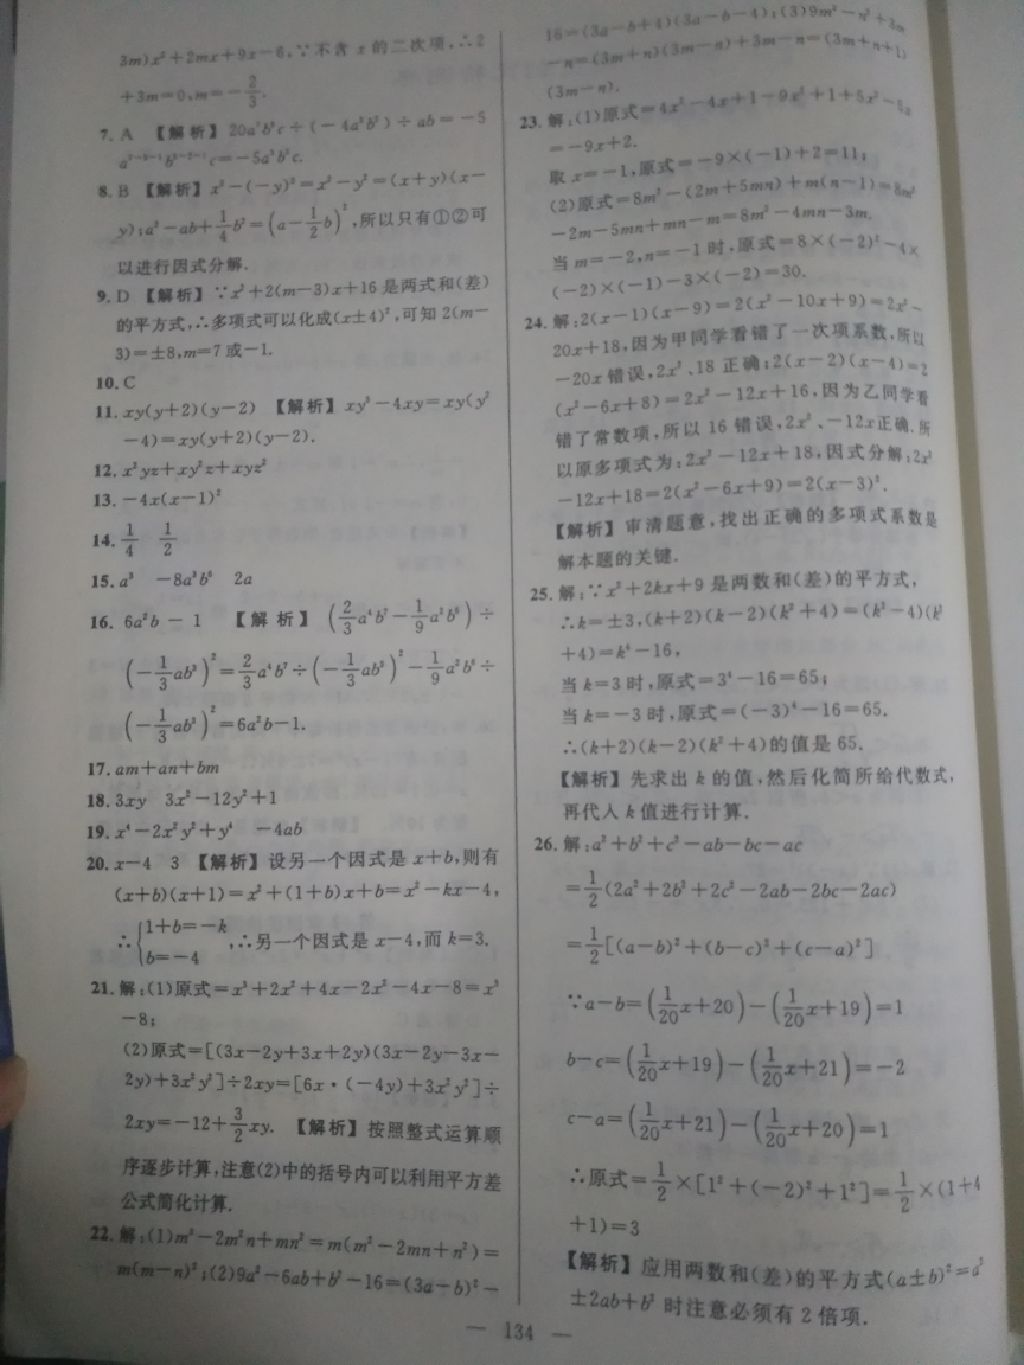 3m)x²+2mx+9x-6,∵不含 x 的二次项,∴2
+3m=0,m=-2/3.
7. A 【解析】20a⁷b⁵c÷(-4a³b²)÷ab=-5
c=-5a³b²c.
8. B 【解析】x²-(-y)²=x²-y²=(x+y)(x-
y);a²-ab+1/4b²=(a-1/2b)²,所以只有①②可
以进行因式分解.
9. D 【解析】∵x²+2(m-3)x+16 是两式和(差)
的平方式,∴多项式可以化成(x±4)²,可知 2(m-
3)=±8,m=7 或-1.
10. C
11. xy(y+2)(y-2) 【解析】xy³-4xy=xy(y²
-4)=xy(y+2)(y-2).
12. x²yz+xy²z+xyz²
13. -4x(x-1)²
14. 1/4 1/2
15. a⁵ -8a³b⁶ 2a
16. 6a²b-1 【解析】(2/3a⁴b⁷-1/9a²b⁶)÷
(-1/3ab³)²=2/3a⁴b⁷÷(-1/3ab³)²-1/9a²b⁶÷
(-1/3ab³)²=6a²b-1.
17. am+an+bm
18. 3xy 3x²-12y²+1
19. x⁴-2x²y²+y⁴ -4ab
20. x-4 3 【解析】设另一个因式是 x+b,则有
(x+b)(x+1)=x²+(1+b)x+b=x²-kx-4,
∴{1+b=-k
b=-4 ,∴另一个因式是 x-4,而 k=3.
21. 解:(1)原式=x³+2x²+4x-2x²-4x-8=x³
-8;
(2)原式=[(3x-2y+3x+2y)(3x-2y-3x-
2y)+3x²y²]÷2xy=[6x·(-4y)+3x²y²]÷
2xy=-12+3/2xy. 【解析】按照整式运算顺
序逐步计算,注意(2)中的括号内可以利用平方差
公式简化计算.
22. 解:(1)m³-2m²n+mn²=m(m²-2mn+n²)=
m(m-n)²;(2)9a²-6ab+b²-16=(3a-b)²-
16=(3a-b+4)(3a-b-4);(3)9m²-n²+3m
-n=(3m+n)(3m-n)+3m-n=(3m+n+1)
(3m-n).
23. 解:(1)原式=4x²-4x+1-9x²+1+5x²-5x
=-9x+2.
取 x=-1,原式=-9×(-1)+2=11;
(2)原式=8m²-(2m+5mn)+m(n-1)=8m²
-2m-5mn+mn-m=8m²-4mn-3m.
当 m=-2,n=-1 时,原式=8×(-2)²-4×
(-2)×(-1)-3×(-2)=30.
24. 解:2(x-1)(x-9)=2(x²-10x+9)=2x²-
20x+18,因为甲同学看错了一次项系数,所以
-20x 错误,2x²、18 正确;2(x-2)(x-4)=2
(x²-6x+8)=2x²-12x+16,因为乙同学看
错了常数项,所以 16 错误,2x²、-12x正确.所
以原多项式为:2x²-12x+18,因式分解:2x²
-12x+18=2(x²-6x+9)=2(x-3)².
【解析】审清题意,找出正确的多项式系数是
解本题的关键.
25. 解:∵x²+2kx+9 是两数和(差)的平方式,
∴k=±3,(k+2)(k-2)(k²+4)=(k²-4)(k²
+4)=k⁴-16,
当 k=3 时,原式=3⁴-16=65;
当 k=-3 时,原式=(-3)⁴-16=65.
∴(k+2)(k-2)(k²+4)的值是 65.
【解析】先求出 k 的值,然后化简所给代数式,
再代入 k 值进行计算.
26. 解:a²+b²+c²-ab-bc-ac
=1/2(2a²+2b²+2c²-2ab-2bc-2ac)
=1/2[(a-b)²+(b-c)²+(c-a)²]
∵a-b=(1/20x+20)-(1/20x+19)=1
b-c=(1/20x+19)-(1/20x+21)=-2
c-a=(1/20x+21)-(1/20x+20)=1
∴原式=1/2×[1²+(-2)²+1²]=1/2×(1+4
+1)=3
【解析】应用两数和(差)的平方式(a±b)²=a²
±2ab+b² 时注意必须有 2 倍项.
— 134 —